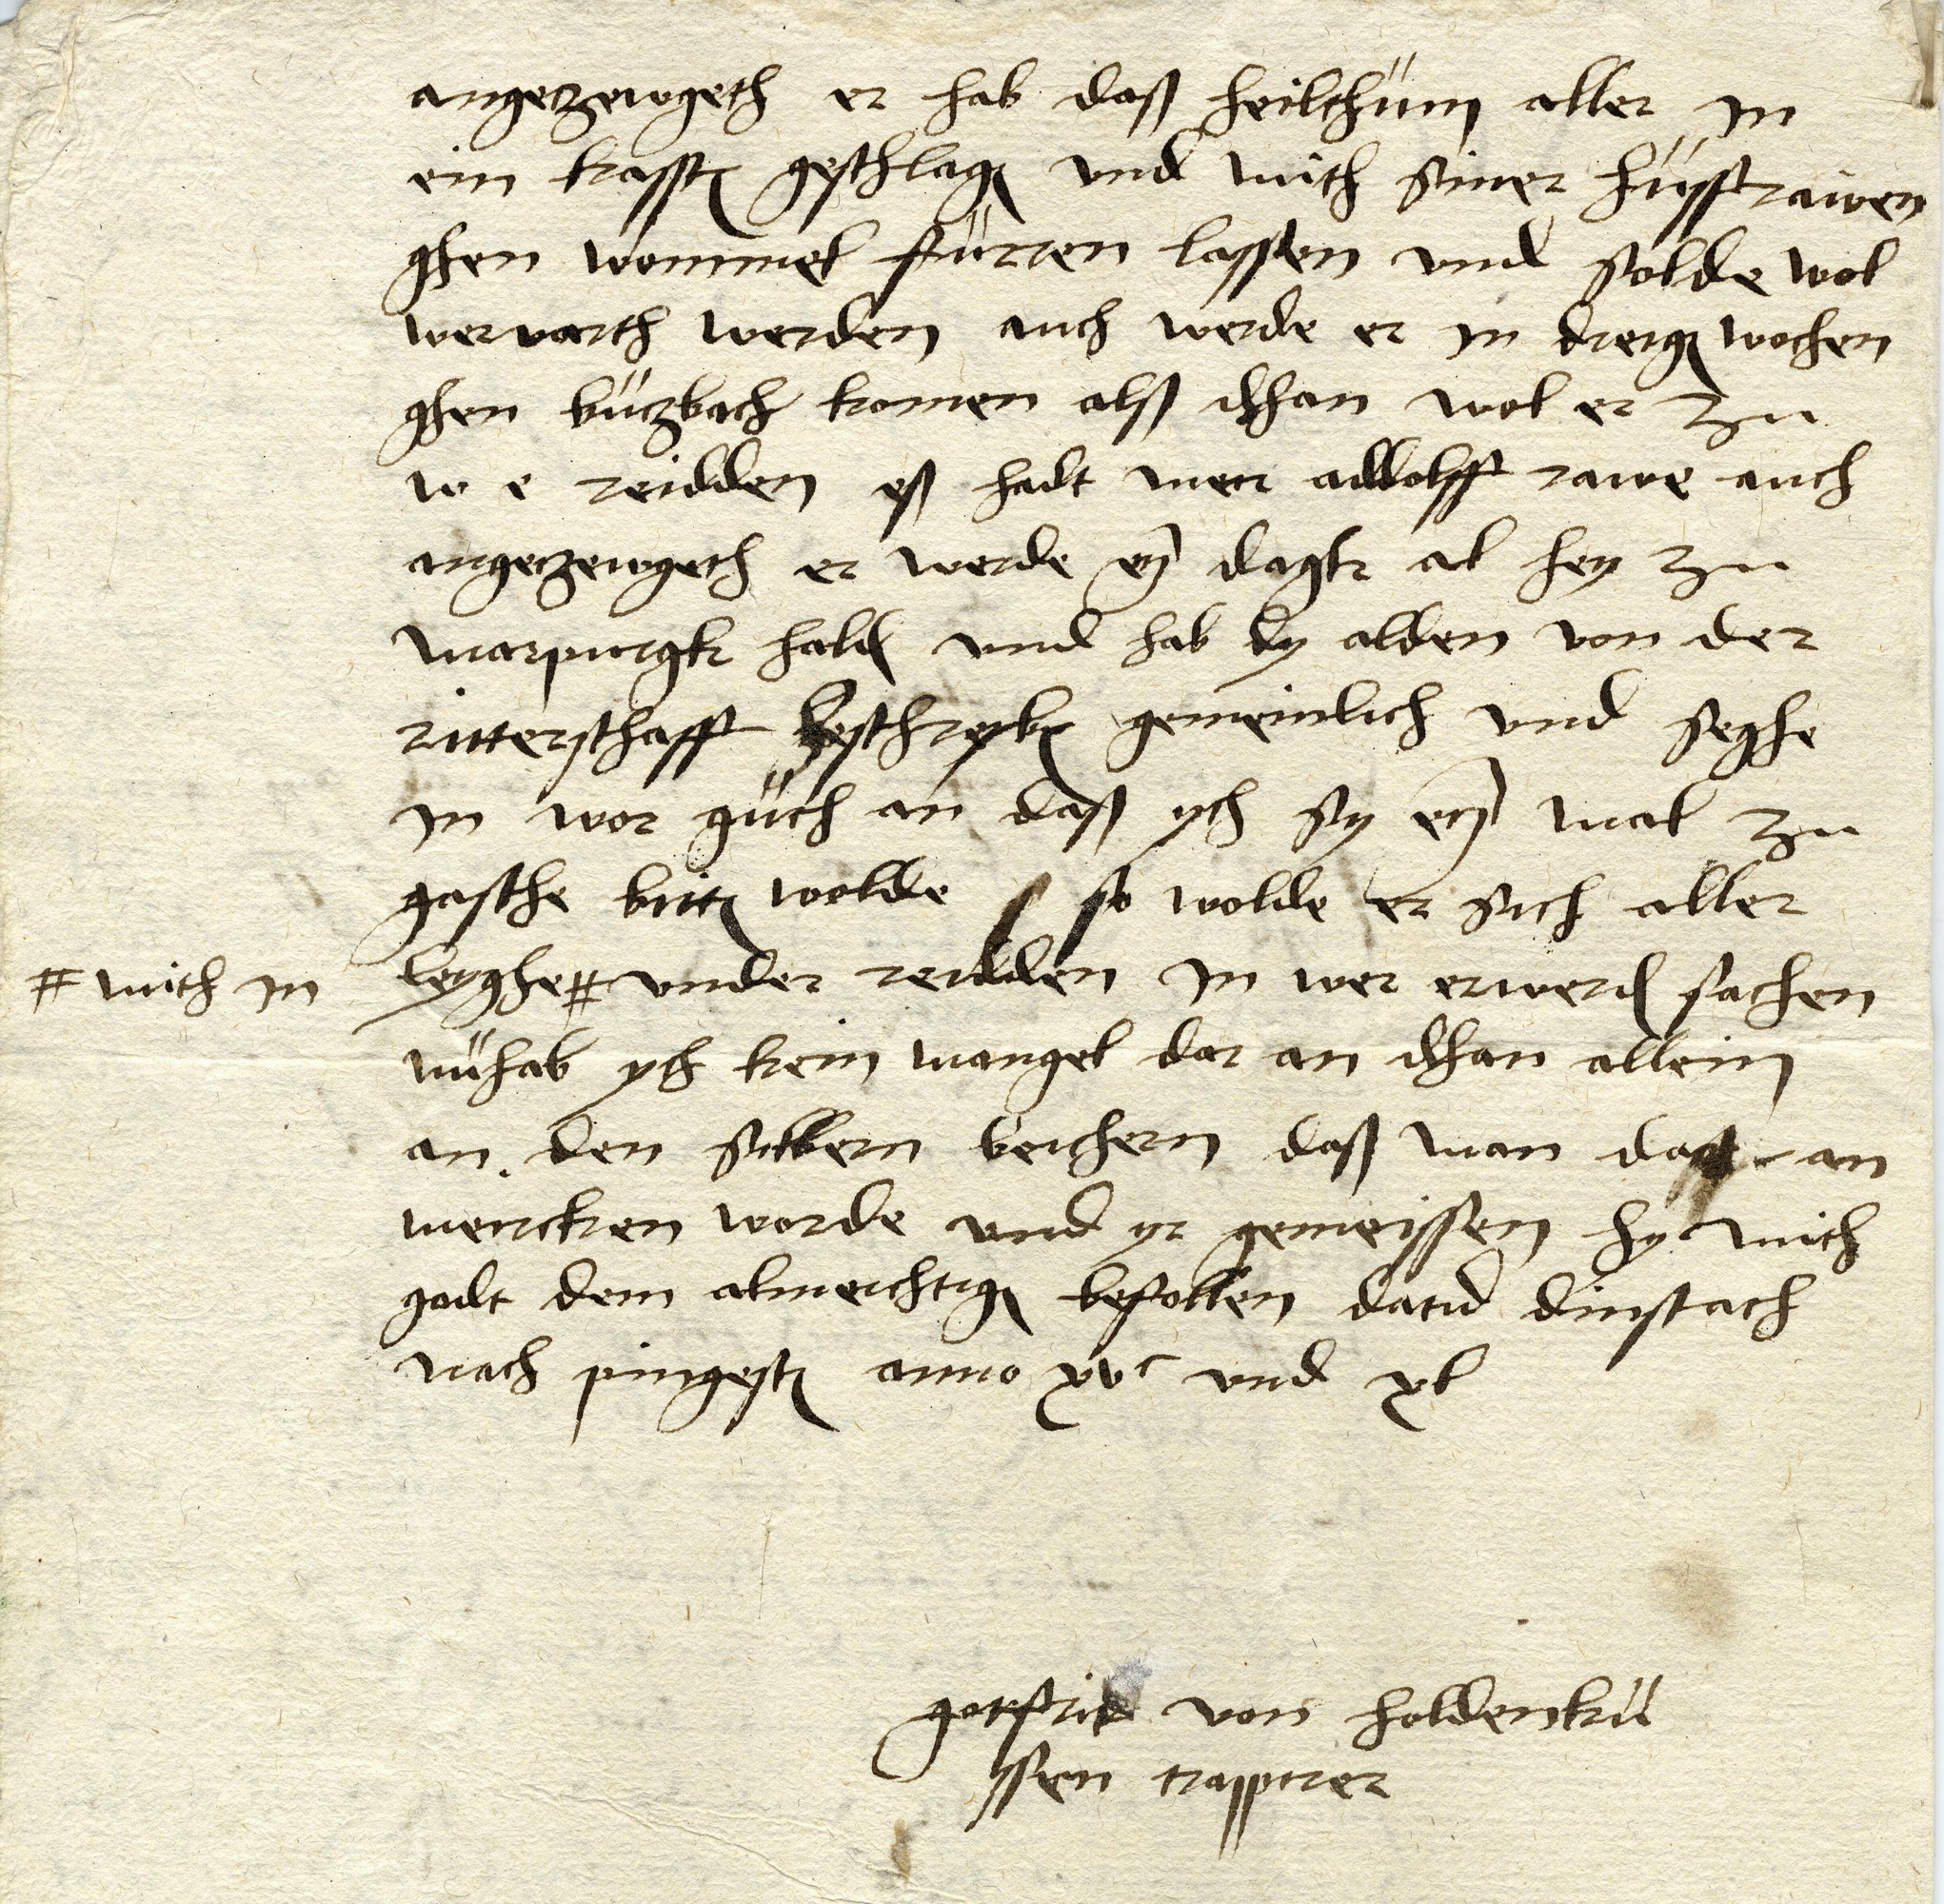 angetzewgeth er hab daß heilthum aller in
ein kassten geschlagen und mith siner hussfrawen
ghen wommel furren lassen und solde wol
wervarth werden auch werde er in dreigen wochen
ghen butzbach komen alß dhan wol er zu
w e reidden eß hadt mer adolff rawe auch
angetzewgeth er werde eyn dagk al hey zu
marpurgk halden und hab dy alden von der
ritterschafft beschryben gemeinlich und seghe
in vor guth an daß ych sy eyn mal zu
gasthe bitten wolde so wolde er sich aller
leyghe # under reidden in wer erwerden sachen
# mith in
nu hab ych kein mangel dar an dhan allein
an den silbern bechern daß man dar an
mercken worde und yr gemeissen hy mith
godt dem almechtigen befollen datum dinstach
nach pingesten anno xvc und xl
gotfrid von holdenku
ssen trappirer